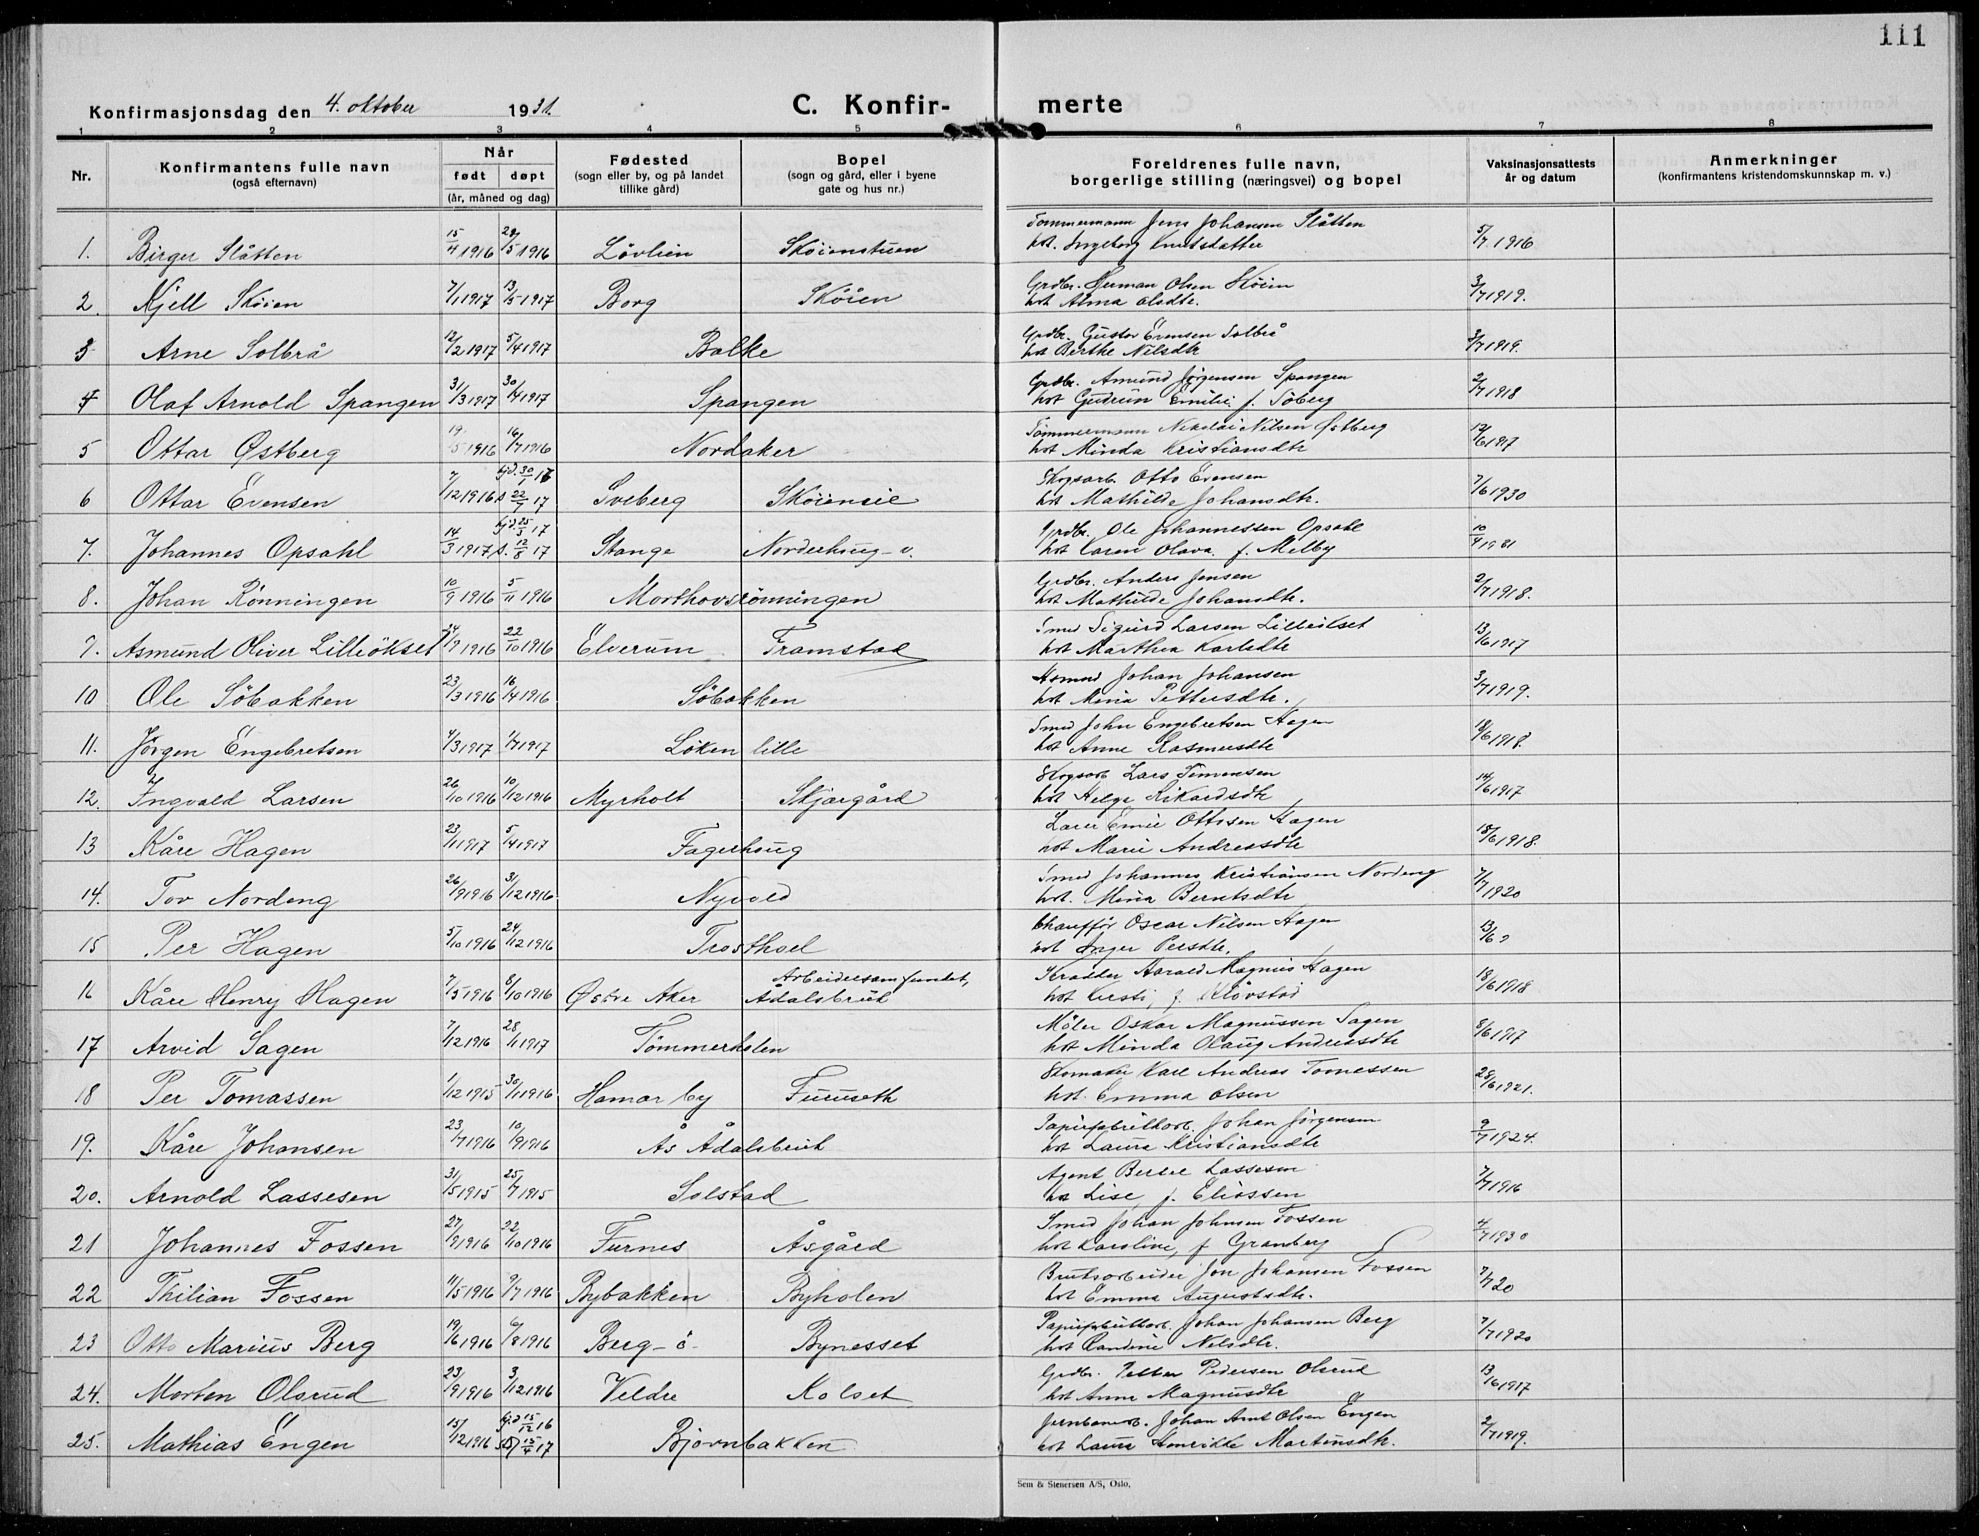 111
Konfirmasjonsdag den 4. oktober 1931. C. Konfir- merte
1 2 3 4 5 6 7 8
Nr. Konfirmantens fulle navn (også efternavn) Når født døpt (år, måned og dag) Fødested (sogn eller by, og på landet tillike gård) Bopel (sogn og gård, eller i byene gate og hus nr.) Foreldrenes fulle navn, borgerlige stilling (næringsvei) og bopel Vaksinasjonsattests år og datum Anmerkninger (konfirmantens kristendomskunnskap m. v.)
Tømmermann Jens Johansen Slåtten
1. Birger Slåtten 15/4 1916 28/5 1916 Lövlien Skøienstuen hst. Ingeborg Knutsdatter 5/7 1916
Grdbr. Herman Olsen Skøien
2. Kjell Skøien 7/1 1917 13/5 1917 Borg Skøien hst Alma Olsdtr. 3/7 1919.
Grdbr. Gustav Evensen Solbrå
3 Arne Solbrå 12/2 1917 5/4 1917 Balke hst Berthe Nilsdtr 3/7 1919.
Grdbr. Amund Jørgensen Spangen
4 Olaf Arnold Spangen 31/3 1917 30/4 1917 Spangen hst Gudrun Emilie f. Søberg 2/7 1918
Tømmermann Nikolai Nilsen Østberg
5 Ottar Østberg 19/5 1916 16/7 1916 Nordaker hst Minda Kristiansdtr 12/6 1917
Skogsarb. Otto Evensen
6 Ottar Evensen 7/12 1916 hjd. 30/1 17 s. 22/7 17 Sveberg Skøieneie hst Mathilde Johansdtr. 7/6 1930
Grdbr. Ole Johannessen Opsahl
7. Johannes Opsahl 14/3 1917 hjd. 25/3 17 s. 12/8 17 Stange Norderhoug - v. hst Karen Olava f. Melby 10/4 1931
Grdbr. Anders Jensen
8. Johan Rönningen 10/9 1916 5/11 1916 Morthovsrönningen hst Mathilde Johansdtr. 2/7 1918.
Smed Sigurd Larsen Lilleökset
9. Asmund Oliver Lilleökset 24/9 1916 22/10 1916 Elverum Framstad hst Marthea Karlsdtr 13/6 1917
Johan Johansen
10 Ole Söbakken 23/3 1916 16/4 1916 Söbakken hst Mina Pettersdtr. 3/7 1919.
Smed John Engebretsen Hagen
11. Jörgen Engebretsen 4/3 1917 1/7 1917 Løken lille hst Anne Rasmusdtr 18/6 1918.
Skogsarb Lars Simensen
12. Ingvald Larsen 26/10 1916 10/12 1916 Myrholt Skjærgård hst Helge Rikardsdtr 14/6 1917
Lærer Emil Ottosen Hagen
13 Kåre Hagen 23/1 1917 5/4 1917 Fagerhoug hst Marie Andreasdtr 18/6 1918.
Smed Johannes Kristiansen Nordeng
14. Tov Nordeng 26/9 1916 31/12 1916. Nyvold hst. Mina Berntsdtr 7/7 1920
Chauffør Oscar Nilsen Hagen
15 Per Hagen 5/10 1916 24/12 1916 Trosthoel hst Inger Persdtr. 13/6 ?
Skredder Harald Magnus Hagen
16 Kåre Henry Hagen 7/5 1916 8/10 1916 Østre Aker Arbeidersamfundet, Ådalsbruk hst Kirsti f. Kløvstad 18/6 1918
Møler Oskar Magnussen Sagen
17 Arvid Sagen 7/12 1916 28/1 1917 Tømmerholen hst Minda Olaug Andreasdtr 8/6 1917
Skomaker Karl Andreas Tomessen
18 Per Tomassen 1/12 1915 30/1 1916 Hamar by Furuseth hst. Emma Olsen 28/6 1921.
Papirfabrikkarb. Johan Jørgensen
19. Kåre Johansen 23/7 1916 10/9 1916 Ås Ådalsbruk hst Laura Kristiansdtr 9/7 1924.
Agent Bertel Lassesen
20. Arnold Lassesen 31/5 1915 25/7 1915 Solstad hst Lise f. Eliassen 7/7 1916
Smed Johan Johnsen Fossen
21 Johannes Fossen 27/9 1916 22/10 1916 Furnes Åsgård hst Karoline, f Granberg 4/7 1930
Bruksarbeider Jon Johansen Fossen
22 Thilian Fossen 11/5 1916 9/7 1916 Bybakken Byholen hst Emma Augustsdtr. 7/7 20
Papirfabrikkarb. Johan Johansen Berg
23 Otto Marius Berg 19/6 1916 6/8 1916 Berg - ö - Bynesset hst Randine Nilsdtr. 7/7 1920
Grdbr. Petter Pedersen Olsrud
24. Morten Olsrud 23/9 1916 3/12 1916 Veldre Kolset hst Anne Magnusdtr 13/6 1917
Jernbanearb. Johan Arnt Olsen Engen
25. Mathias Engen 15/12 1916 hjd 15/12 16 st 15/4 17 Bjørnbakken hst Laura Henrikke Martinsdtr. 2/7 1919.
Sem & Stenersen A/S, Oslo.